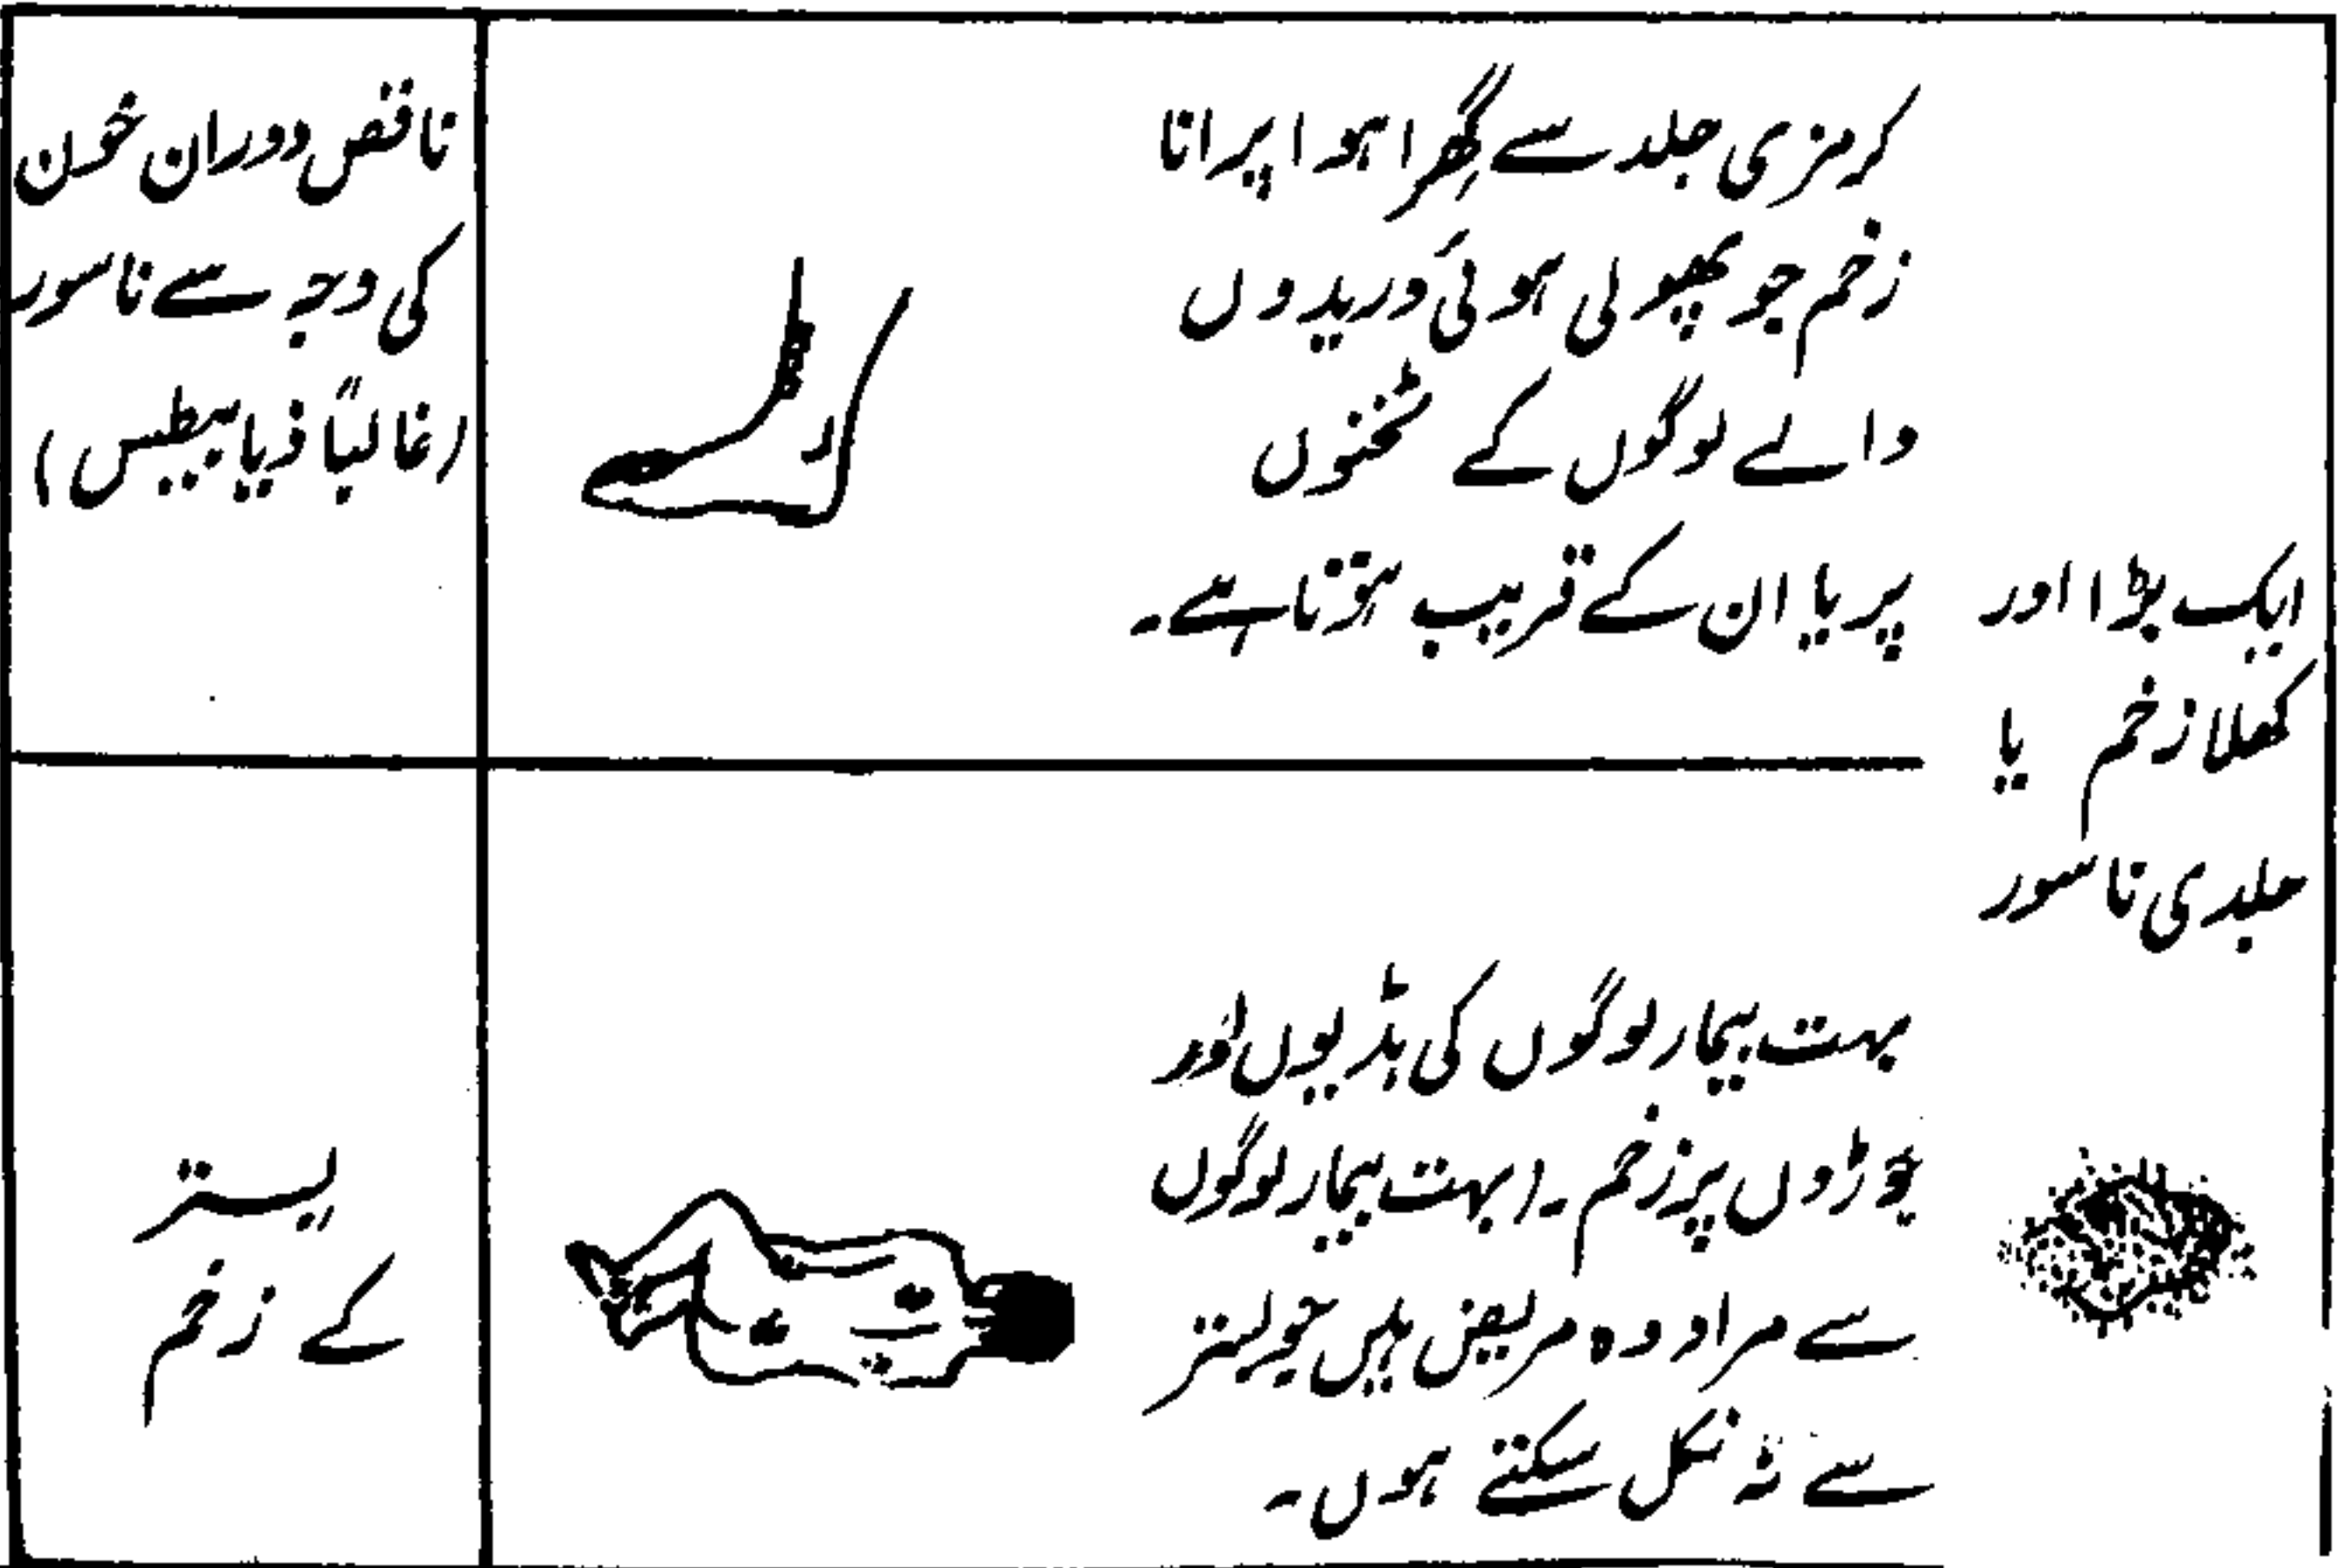 ایک بڑا اور
کھلا زخم یا
جلدی ناسور
کرمزی جلد سے گھِرا ہوا پرانا
زخم جو پھولی ہوئی وریدوں
والے لوگوں کے ٹخنوں
پر یا ان کے قریب ہوتا ہے۔
ناقص دوران خون
کی وجہ سے ناسور
(غالباً ذیابیطیس)
بہت بیمار لوگوں کی ہڈیوں اور
جوڑوں پر زخم۔ (بہت بیمار لوگوں
سے مراد وہ مریض ہیں جو بستر
سے نہ نکل سکتے ہوں۔
بستر
کے زخم